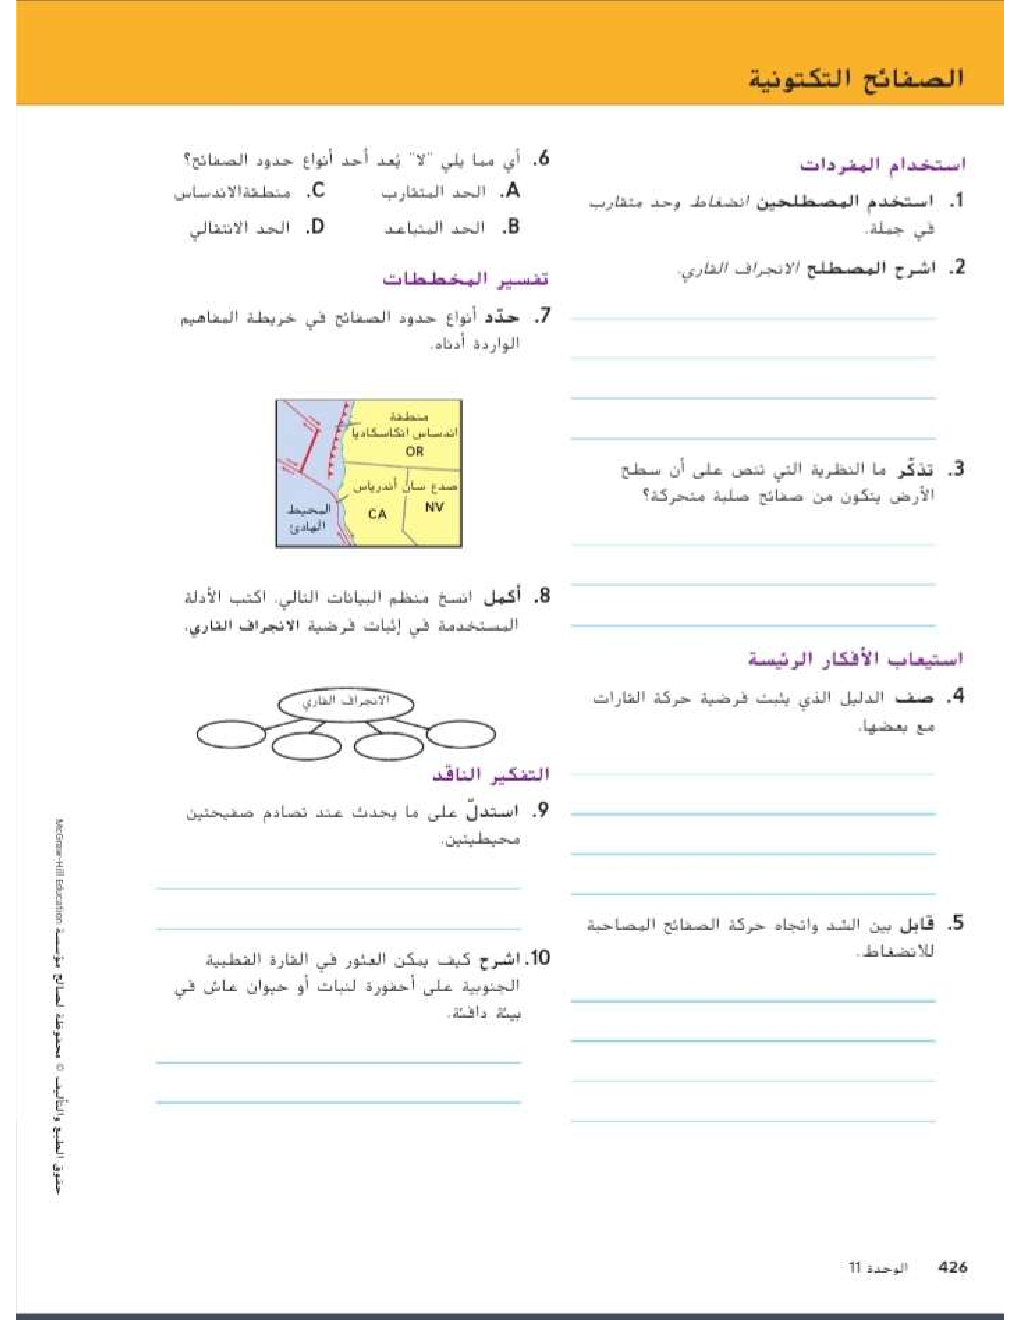 الصفائح التكتونية
استخدام المفردات
1. استخدم المصطلحين انضغاط وحد متقارب
في جملة.
2. اشرح المصطلح الانجراف القاري.
3. تذكّر ما النظرية التي تنص على أن سطح
الأرض يتكون من صفائح صلبة متحركة؟
استيعاب الأفكار الرئيسة
4. صف الدليل الذي يثبت فرضية حركة القارات
مع بعضها.
5. قابل بين الشد واتجاه حركة الصفائح المصاحبة
للانضغاط.
6. أي مما يلي "لا" يُعد أحد أنواع حدود الصفائح؟
A. الحد المتقارب C. منطقة الاندساس
B. الحد المتباعد D. الحد الانتقالي
تفسير المخططات
7. حدّد أنواع حدود الصفائح في خريطة المفاهيم
الواردة أدناه.
منطقة
اندساس انكاسكاديا
OR
صدع سان أندرياس
NV
CA
المحيط
الهادئ
8. أكمل انسخ منظم البيانات التالي. اكتب الأدلة
المستخدمة في إثبات فرضية الانجراف القاري.
الانجراف القاري
التفكير الناقد
9. استدلّ على ما يحدث عند تصادم صفيحتين
محيطيتين.
10. اشرح كيف يمكن العثور في القارة القطبية
الجنوبية على أحفورة لنبات أو حيوان عاش في
بيئة دافئة.
حقوق الطبع والتأليف © محفوظة لصالح مؤسسة McGraw-Hill Education
426 الوحدة 11